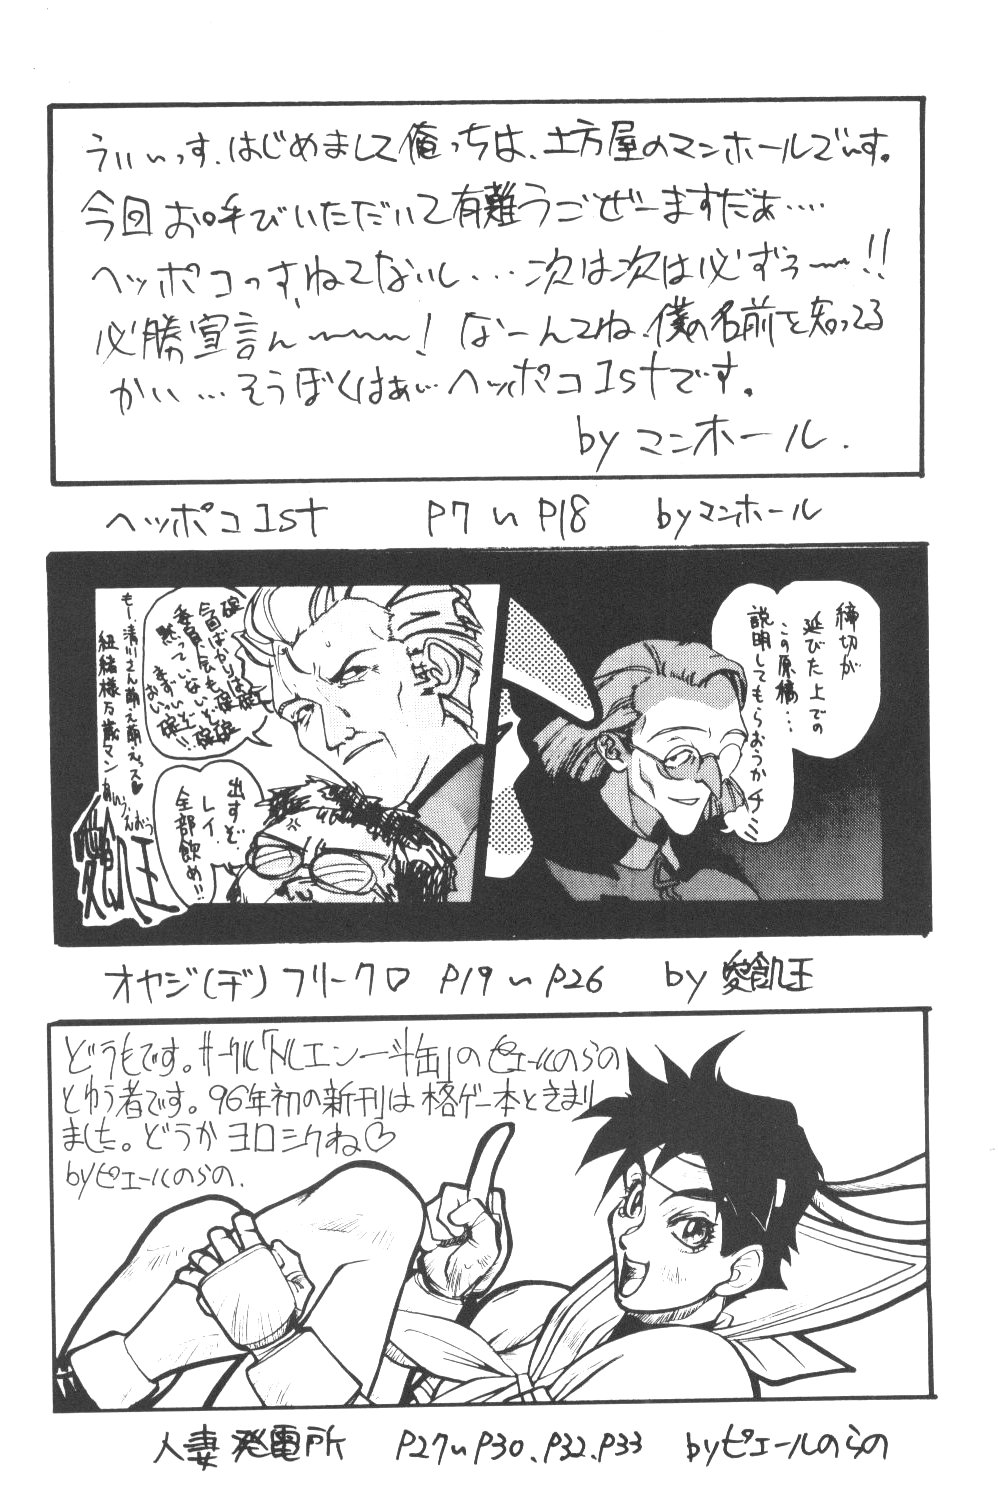 うぃぃっす、はじめまして俺っちは、土方屋のマンホールでぃす。
今回お呼びいただいて有難うごぜーますだぁ‥‥
ヘッポコっすねてないし…次は次は必ずぅ〜!!
必勝宣言ん〜〜〜! なーんてね、僕の名前を知ってる
かい…そうぼくはぁぃヘッポコ1stです。
by マンホール.
ヘッポコ1st P7〜P18 by マンホール
締切が
延びた上での
この原稿・・・
説明してもらおうか
碇
今回ばかりは
委員会も
黙っていないぞ
まずいぞ
おい碇!!
もー清川さん萌え萌えっス♡
紐緒様万歳マン
出すぞ
レイ、
全部飲め!!
愛飢王
オヤジ(デ)フリークロ P19〜P26 by 愛飢王
どうもです。サークル「トルエン一斗缶」のピエールのらの
とゆう者です。96年初の新刊は格ゲー本ときまり
ました。どうかヨロシクね♡
by ピエールのらの.
人妻発電所 P27〜P30、P32、P33 by ピエールのらの